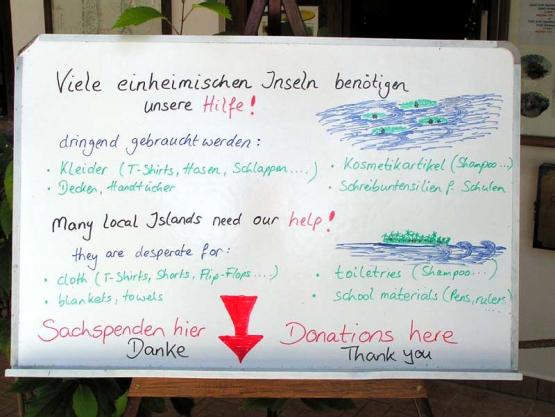 Viele einheimischen Inseln benötigen
unsere Hilfe!
dringend gebraucht werden:
• Kleider (T-Shirts, Hosen, Schlappen....)
• Decken, Handtücher
• Kosmetikartikel (Shampoo...)
• Schreibutensilien f. Schulen
Many local Islands need our help!
they are desperate for:
• cloth (T-Shirts, Shorts, Flip-Flops....)
• blankets, towels
• toiletries (Shampoo...)
• school materials (Pens, rulers..)
Sachspenden hier
Danke
Donations here
Thank you